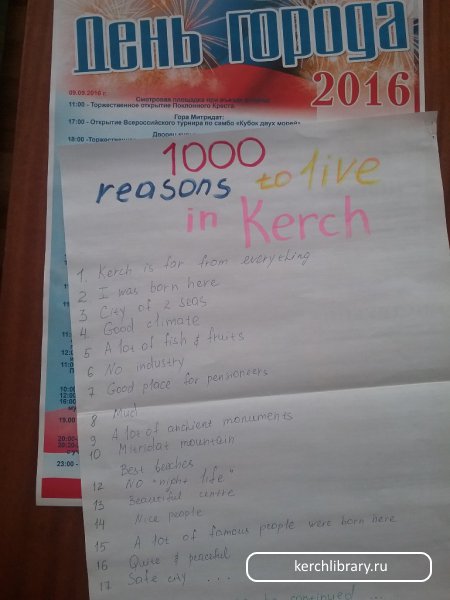 День города
2016
09.09.2016 г.
11:00 - Торжественное открытие Поклонного Креста.
Гора Митридат:
17:00 - Открытие Всероссийского турнира по самбо «Кубок двух морей»
18:00 - Торжественное
1000
reasons to live
in Kerch
1. Kerch is far from everything
2 I was born here
3 City of 2 seas
4. Good climate
5 A lot of fish & fruits
6 No industry
7 Good place for pensioneers
8 Mud
9 A lot of anchient monuments
10 Mitridat mountain
Best beaches
12 No "night life"
13 Beautiful centre
14 Nice people
15 A lot of famous people were born here
16 Quite & peaceful
17 Safe city ...
to be continued ...
19.00
23:00 -
kerchlibrary.ru